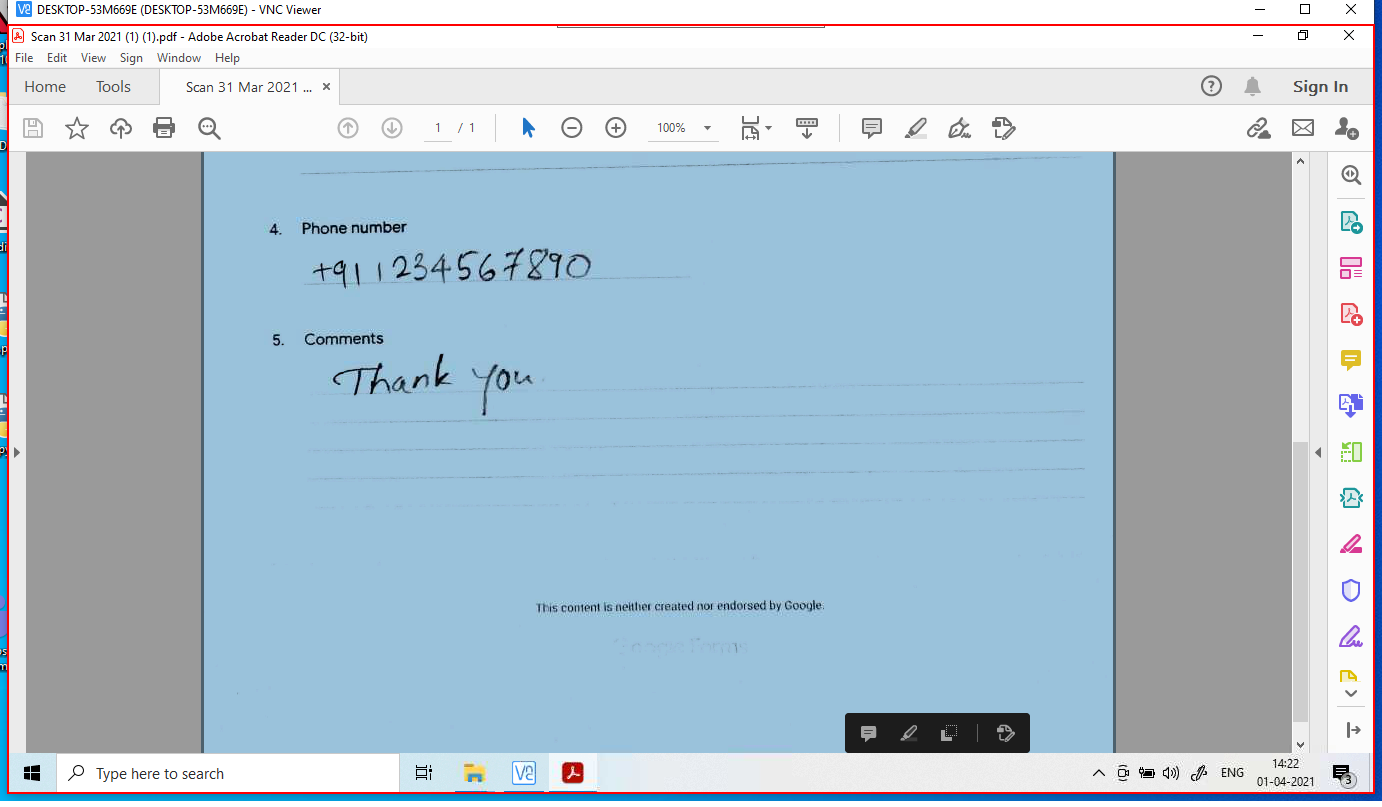 DESKTOP-53M669E (DESKTOP-53M669E) - VNC Viewer
Scan 31 Mar 2021 (1) (1).pdf - Adobe Acrobat Reader DC (32-bit)
File Edit View Sign Window Help
Home Tools Scan 31 Mar 2021 ... × Sign In
1 / 1 100%
4. Phone number
+91 1234567890
5. Comments
Thank you
This content is neither created nor endorsed by Google.
Google Forms
Type here to search
ENG 14:22
01-04-2021 3